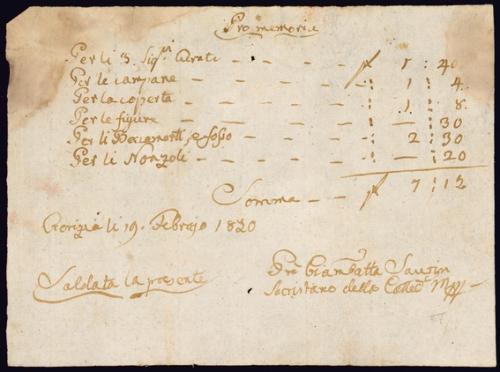 Pro memoria
Per li 3. Sig.ri Curati — — — f 1 : 40
Per le campane — — — — : 1 : 4
Per la coperta — — — — : 1 : 8
Per le figure — — — — : — : 30
Per li Becamorti, e fosso — — : 2 : 30
Per li Nonzoli — — — — : — : 20
Somma — — f 7 : 12
Gorizia li 19. Febrajo 1820
Saldata la presente
Giambatta
Sacristano della